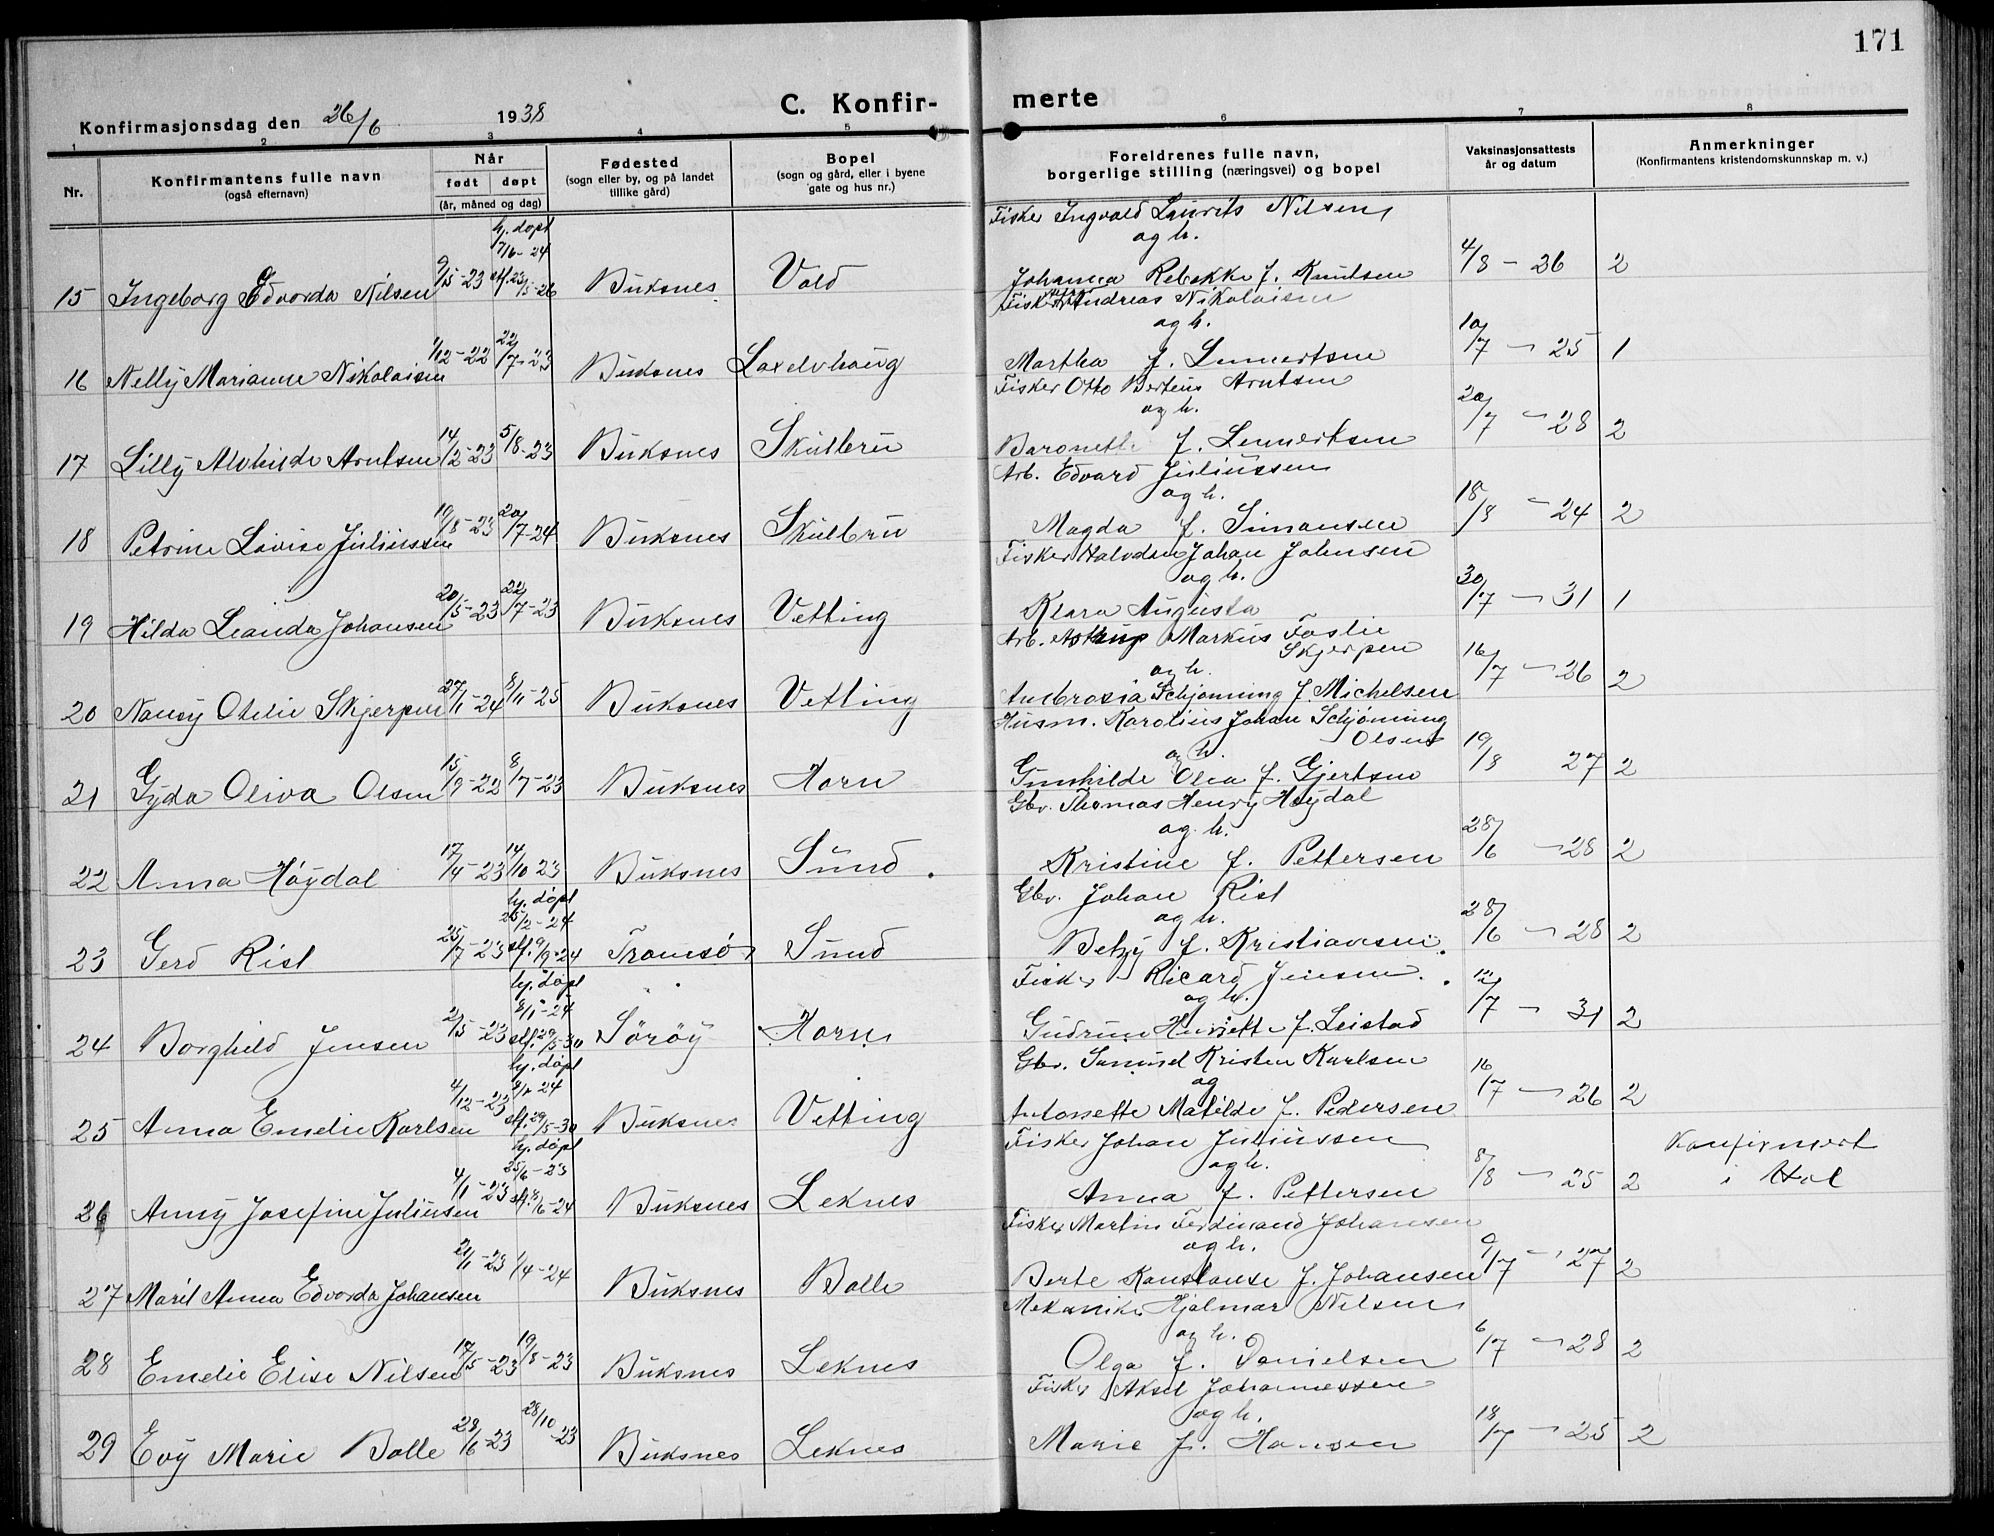 171
C. Konfir- merte
Konfirmasjonsdag den 26/6 1938
1 2 3 4 5 6 7 8
Nr.
Konfirmantens fulle navn
(også efternavn)
Når
født døpt
(år, måned og dag)
Fødested
(sogn eller by, og på landet
tillike gård)
Bopel
(sogn og gård, eller i byene
gate og hus nr.)
Foreldrenes fulle navn,
borgerlige stilling (næringsvei) og bopel
Vaksinasjonsattests
år og datum
Anmerkninger
(Konfirmantens kristendomskunnskap m. v.)
Fisker Ingvald Laurits Nilsen
hj. døpt
7/6-24 og h.
15 Ingeborg Edvarda Nilsen 9/5-23 stf. 23/5-26 Buksnes Vold Johanna Rebekka f. Knutsen 4/8-26 2
Fisker Andreas Nikolaisen
og h.
16 Nelly Marianne Nikolaisen 1/12-22 22/7-23 Buksnes Laxelvhaug Martha f. Lennertsen 10/7-25 1
Fisker Otto Berteus Arntsen
og h.
17 Lilly Alvhilde Arntsen 14/2-23 5/8-23 Buksnes Skulbru Baronette f. Lennertsen 20/7-28 2
Arb. Edvard Juliussen
og h.
18 Petrine Lovise Juliussen 19/8-23 20/7-24 Buksnes Skulbru Magda f. Simonsen 18/8-24 2
Fisker Halvdan Johan Johnsen
og h.
19 Hilda Leanda Johansen 20/5-23 22/7-23 Buksnes Vetting Klara Augusta 30/7-31 1
Arb. Astrup Markus Foslie
Skjerpen
og h.
20 Nancy Otelie Skjerpen 27/11-24 8/11-25 Buksnes Vetting Ambrosia Schjønning f. Michelsen 16/7-26 2
Husm. Karolius Johan Schjønning
Olsen
og h.
21 Gyda Oliva Olsen 15/9-22 8/7-23 Buksnes Horn Gunhilde Olea f. Gjertsen 19/8 27 2
Gbr. Thomas Henry Høydal
og h.
22 Anna Høydal 17/4-23 14/10 23 Buksnes Sund Kristine f. Pettersen 28/6-28 2
Gbr. Johan Rist
hj. døpt
25/2-24 og h.
23 Gerd Rist 25/7-23 stf. 9/9-24 Tromsø Sund Betzy f. Kristiansen 28/6-28 2
Fisker Ricard Jensen
hj. døpt
8/1-24 og h.
24 Borghild Jensen 2/5-23 stf. 29/5-30 Sørøy Horn Gudrun Henriette f. Leistad 12/7-31 2
Gbr. Samuel Kristen Karlsen
hj. døpt
24 og
25 Anna Emelie Karlsen 4/12-23 stf. 29/5-30 Buksnes Vetting Antonette Matilde f. Pedersen 16/7-26 2
Fisker Johan Juliussen
hj. døpt
25/6-23 og h.
26 Anny Josefine Juliusen 4/1-23 stf. 8/6-24 Buksnes Leknes Anna f. Pettersen 8/8-25 2 Konfirmert
i Hol
Fisker Martin Ferdinand Johansen
og h.
27 Marit Anna Edvarda Johansen 21/11-23 1/4-24 Buksnes Bolle Berte Konstanse f. Johansen 9/7-27 2
Mekaniker Hjalmar Nilsen
og h.
28 Emelie Elise Nilsen 17/5-23 19/8-23 Buksnes Leknes Olga f. Danielsen 6/7-28 2
Fisker Aksel Johannessen
og h.
29 Evy Marie Bolle 28/6-23 28/10-23 Buksnes Leknes Marie f. Hansen 18/7-25 2